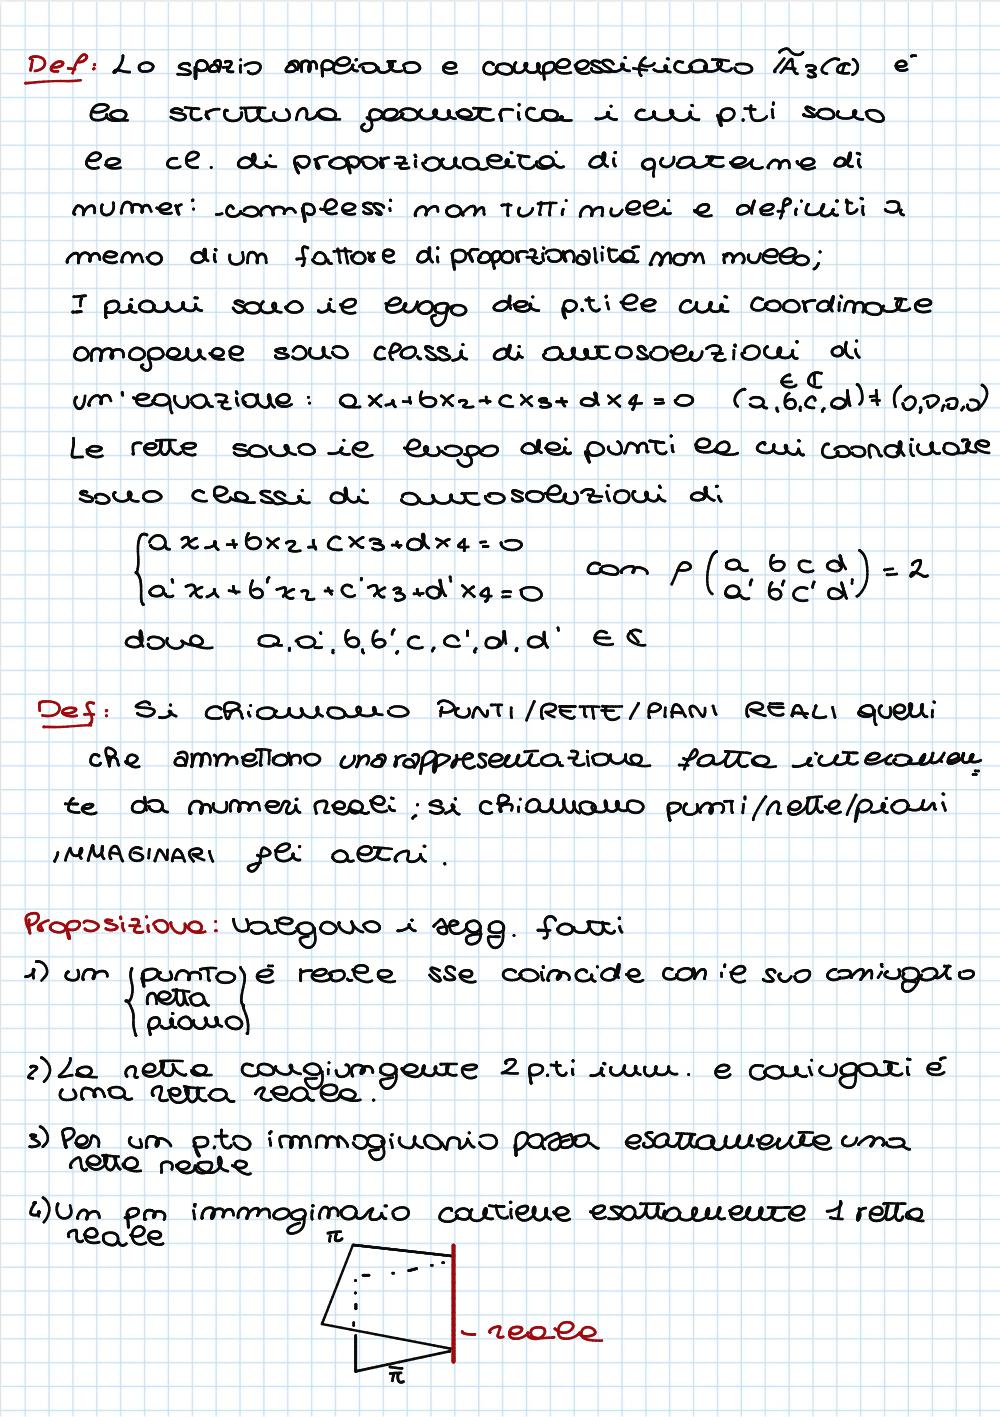 Def: Lo spazio ampliato e complessificato Ã₃(ℂ) è
la struttura geometrica i cui p.ti sono
le cl. di proporzionalità di quaterne di
numeri complessi non tutti nulli e definiti a
meno di un fattore di proporzionalità non nullo;
I piani sono il luogo dei p.ti le cui coordinate
omogenee sono classi di autosoluzioni di
un'equazione: ax₁+bx₂+cx₃+dx₄=0 (a,b,c,d)≠(0,0,0,0)
∈ ℂ
Le rette sono il luogo dei punti le cui coordinate
sono classi di autosoluzioni di
{ax₁+bx₂+cx₃+dx₄=0
a'x₁+b'x₂+c'x₃+d'x₄=0 con ρ(a b c d
a' b' c' d') = 2
dove a,a',b,b',c,c',d,d' ∈ ℂ
Def: Si chiamano PUNTI/RETTE/PIANI REALI quelli
che ammettono una rappresentazione fatta interamen
te da numeri reali; si chiamano punti/rette/piani
IMMAGINARI gli altri.
Proposizione: Valgono i segg. fatti
1) un {punto} è reale sse coincide con il suo coniugato
retta
piano
2) La retta congiungente 2 p.ti imm. e coniugati é
una retta reale.
3) Per un p.to immaginario passa esattamente una
retta reale
4) Un pn immaginario contiene esattamente 1 retta
reale
π
- reale
π̄